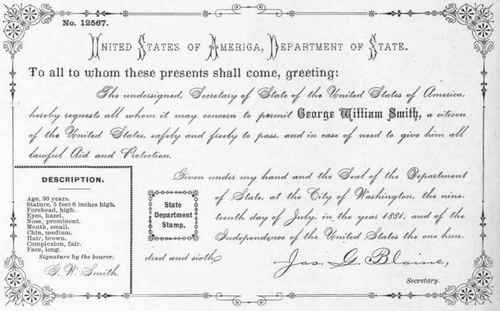 No. 12567.
UNITED STATES OF AMERICA, DEPARTMENT OF STATE.
To all to whom these presents shall come, greeting:
The undersigned, Secretary of State of the United States of America,
hereby requests all whom it may concern to permit George William Smith, a citizen
of the United States, safely and freely to pass, and in case of need to give him all
lawful Aid and Protection.
DESCRIPTION.
Age, 36 years.
Stature, 5 feet 6 inches high.
Forehead, high.
Eyes, hazel.
Nose, prominent.
Mouth, small.
Chin, medium.
Hair, brown.
Complexion, fair.
Face, long.
Signature by the bearer.
G. W. Smith
State
Department
Stamp.
Given under my hand and the Seal of the Department
of State, at the City of Washington, the nine-
teenth day of July, in the year 1881, and of the
Independence of the United States the one hun-
dred and sixth
Jas. G. Blaine,
Secretary.